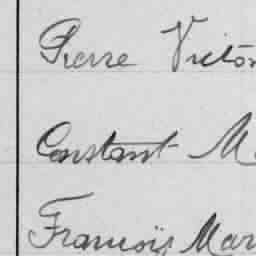 Pierre Victor
Constant M
François Mar